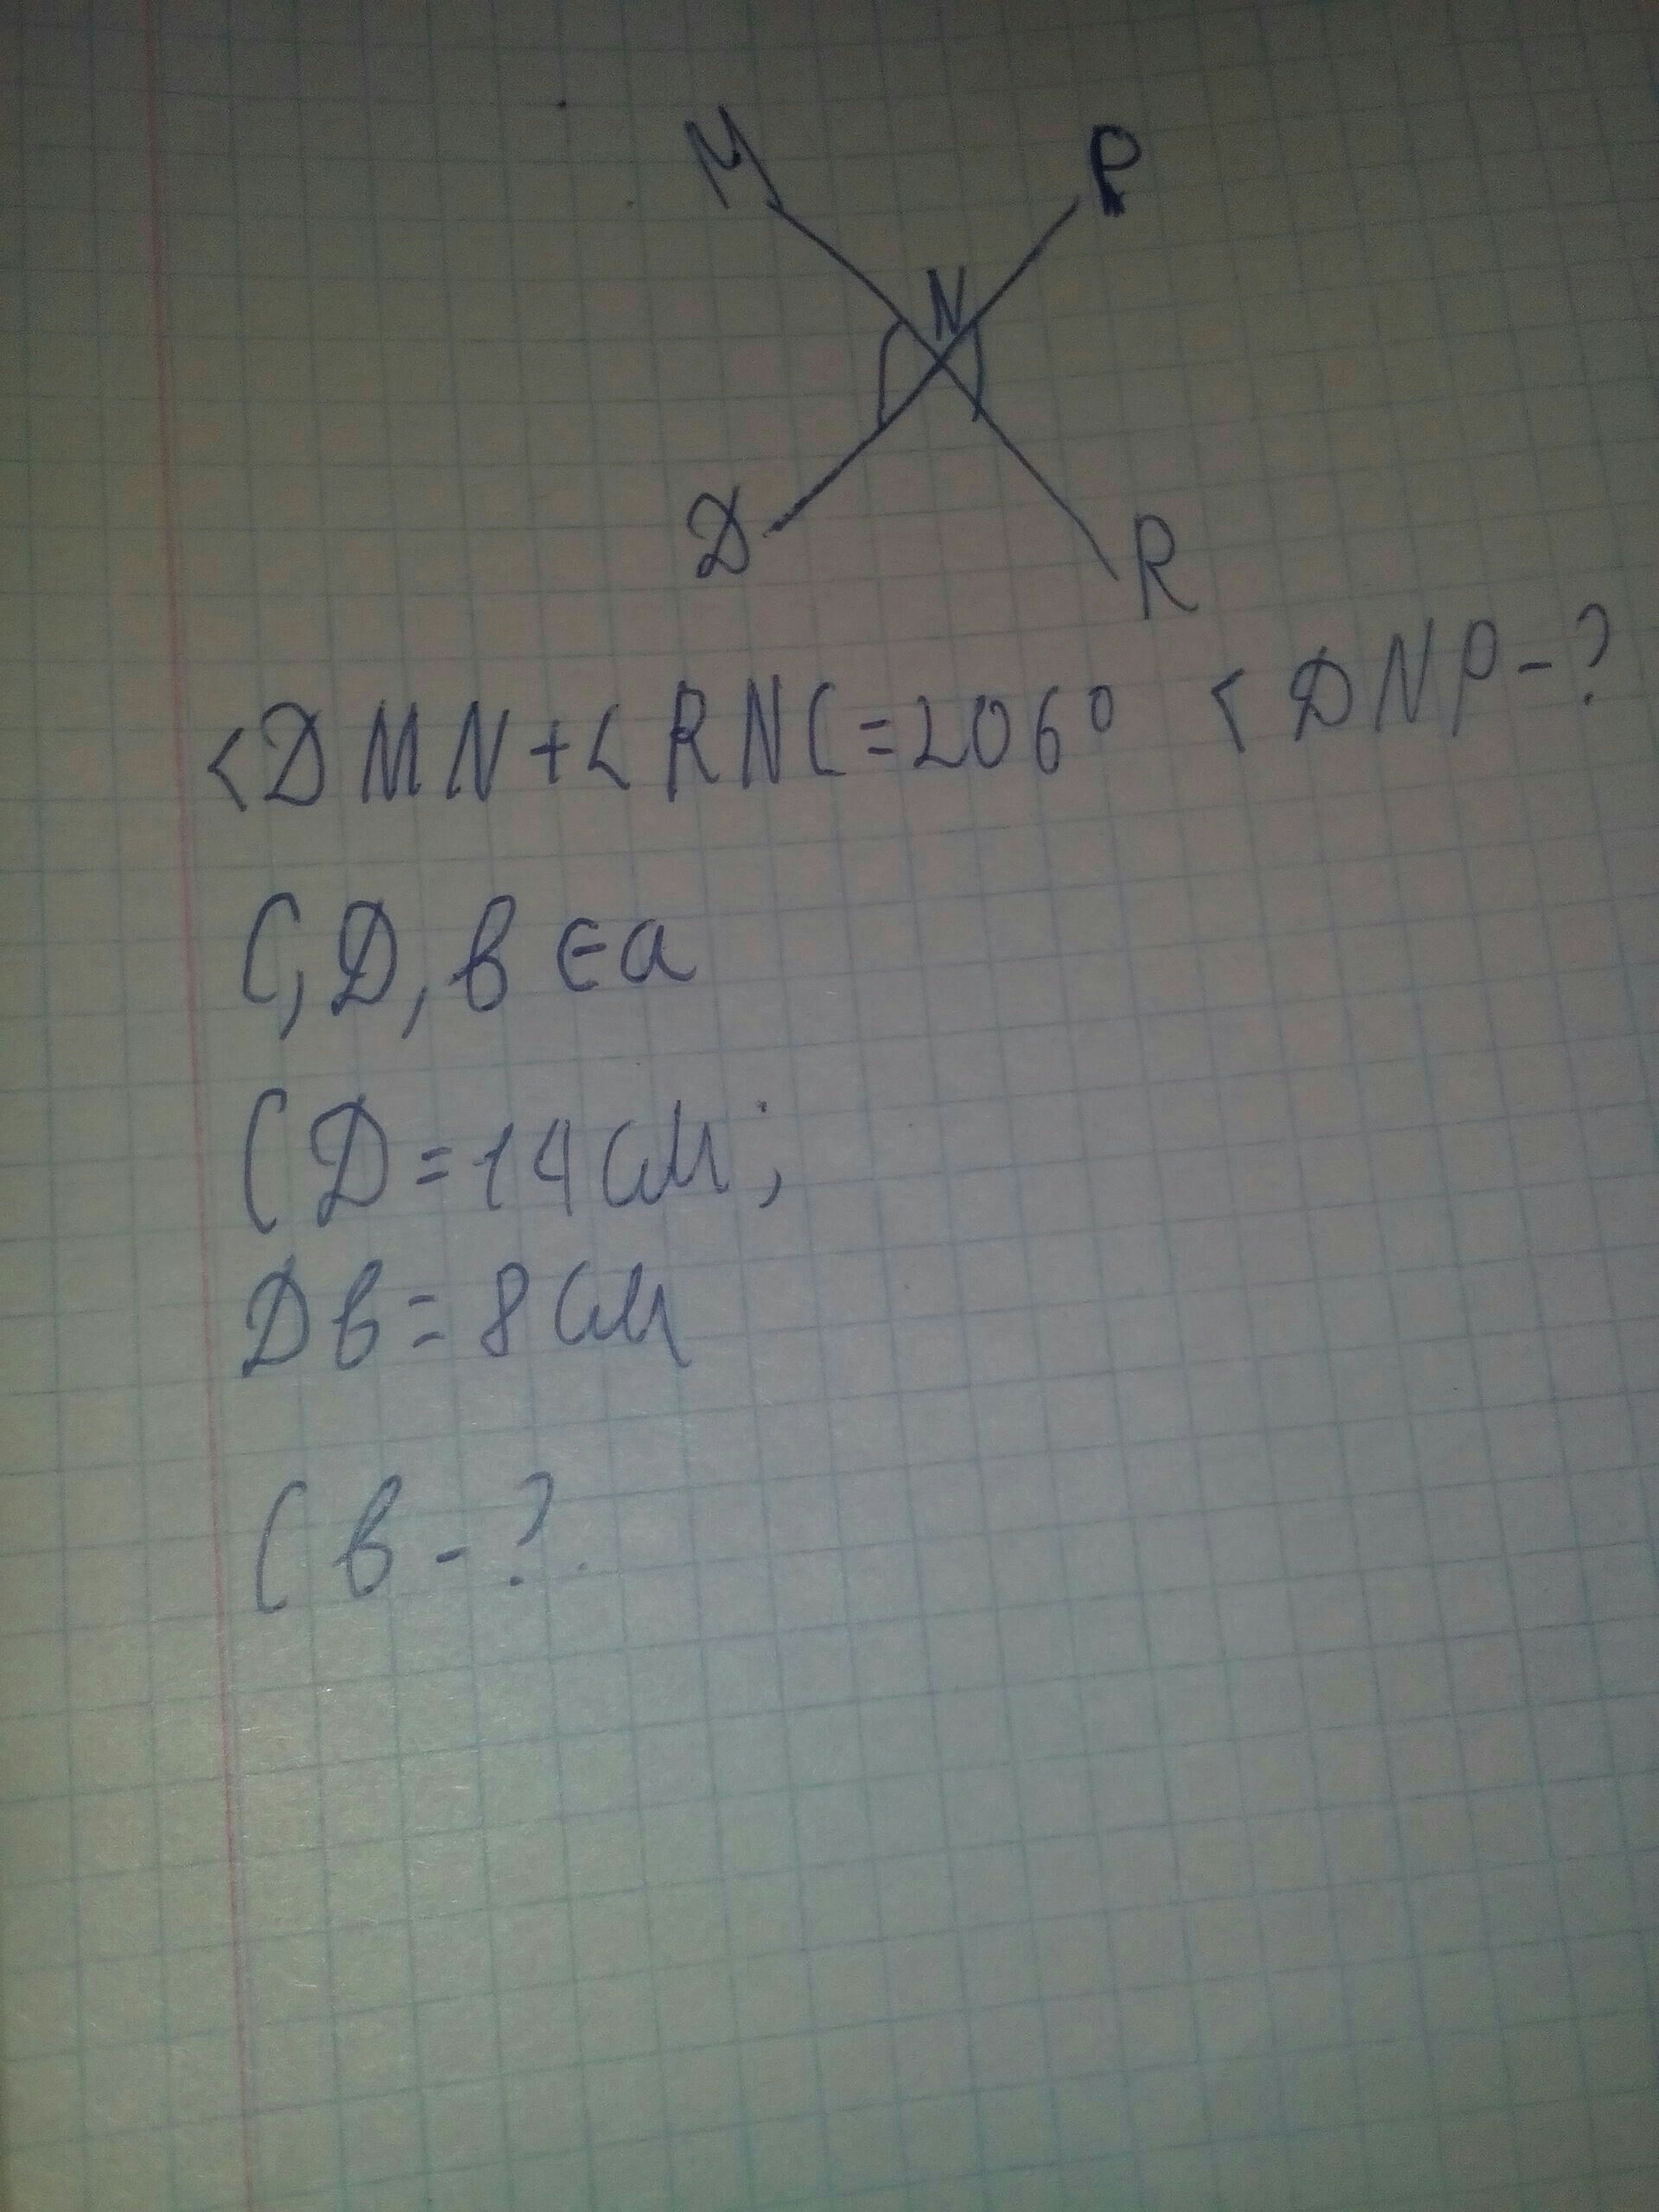 M P
N
D R
<DMN+<RNC=206° <DNP-?
C,D,B∈a
CD=14см;
DB=8см
CB-?